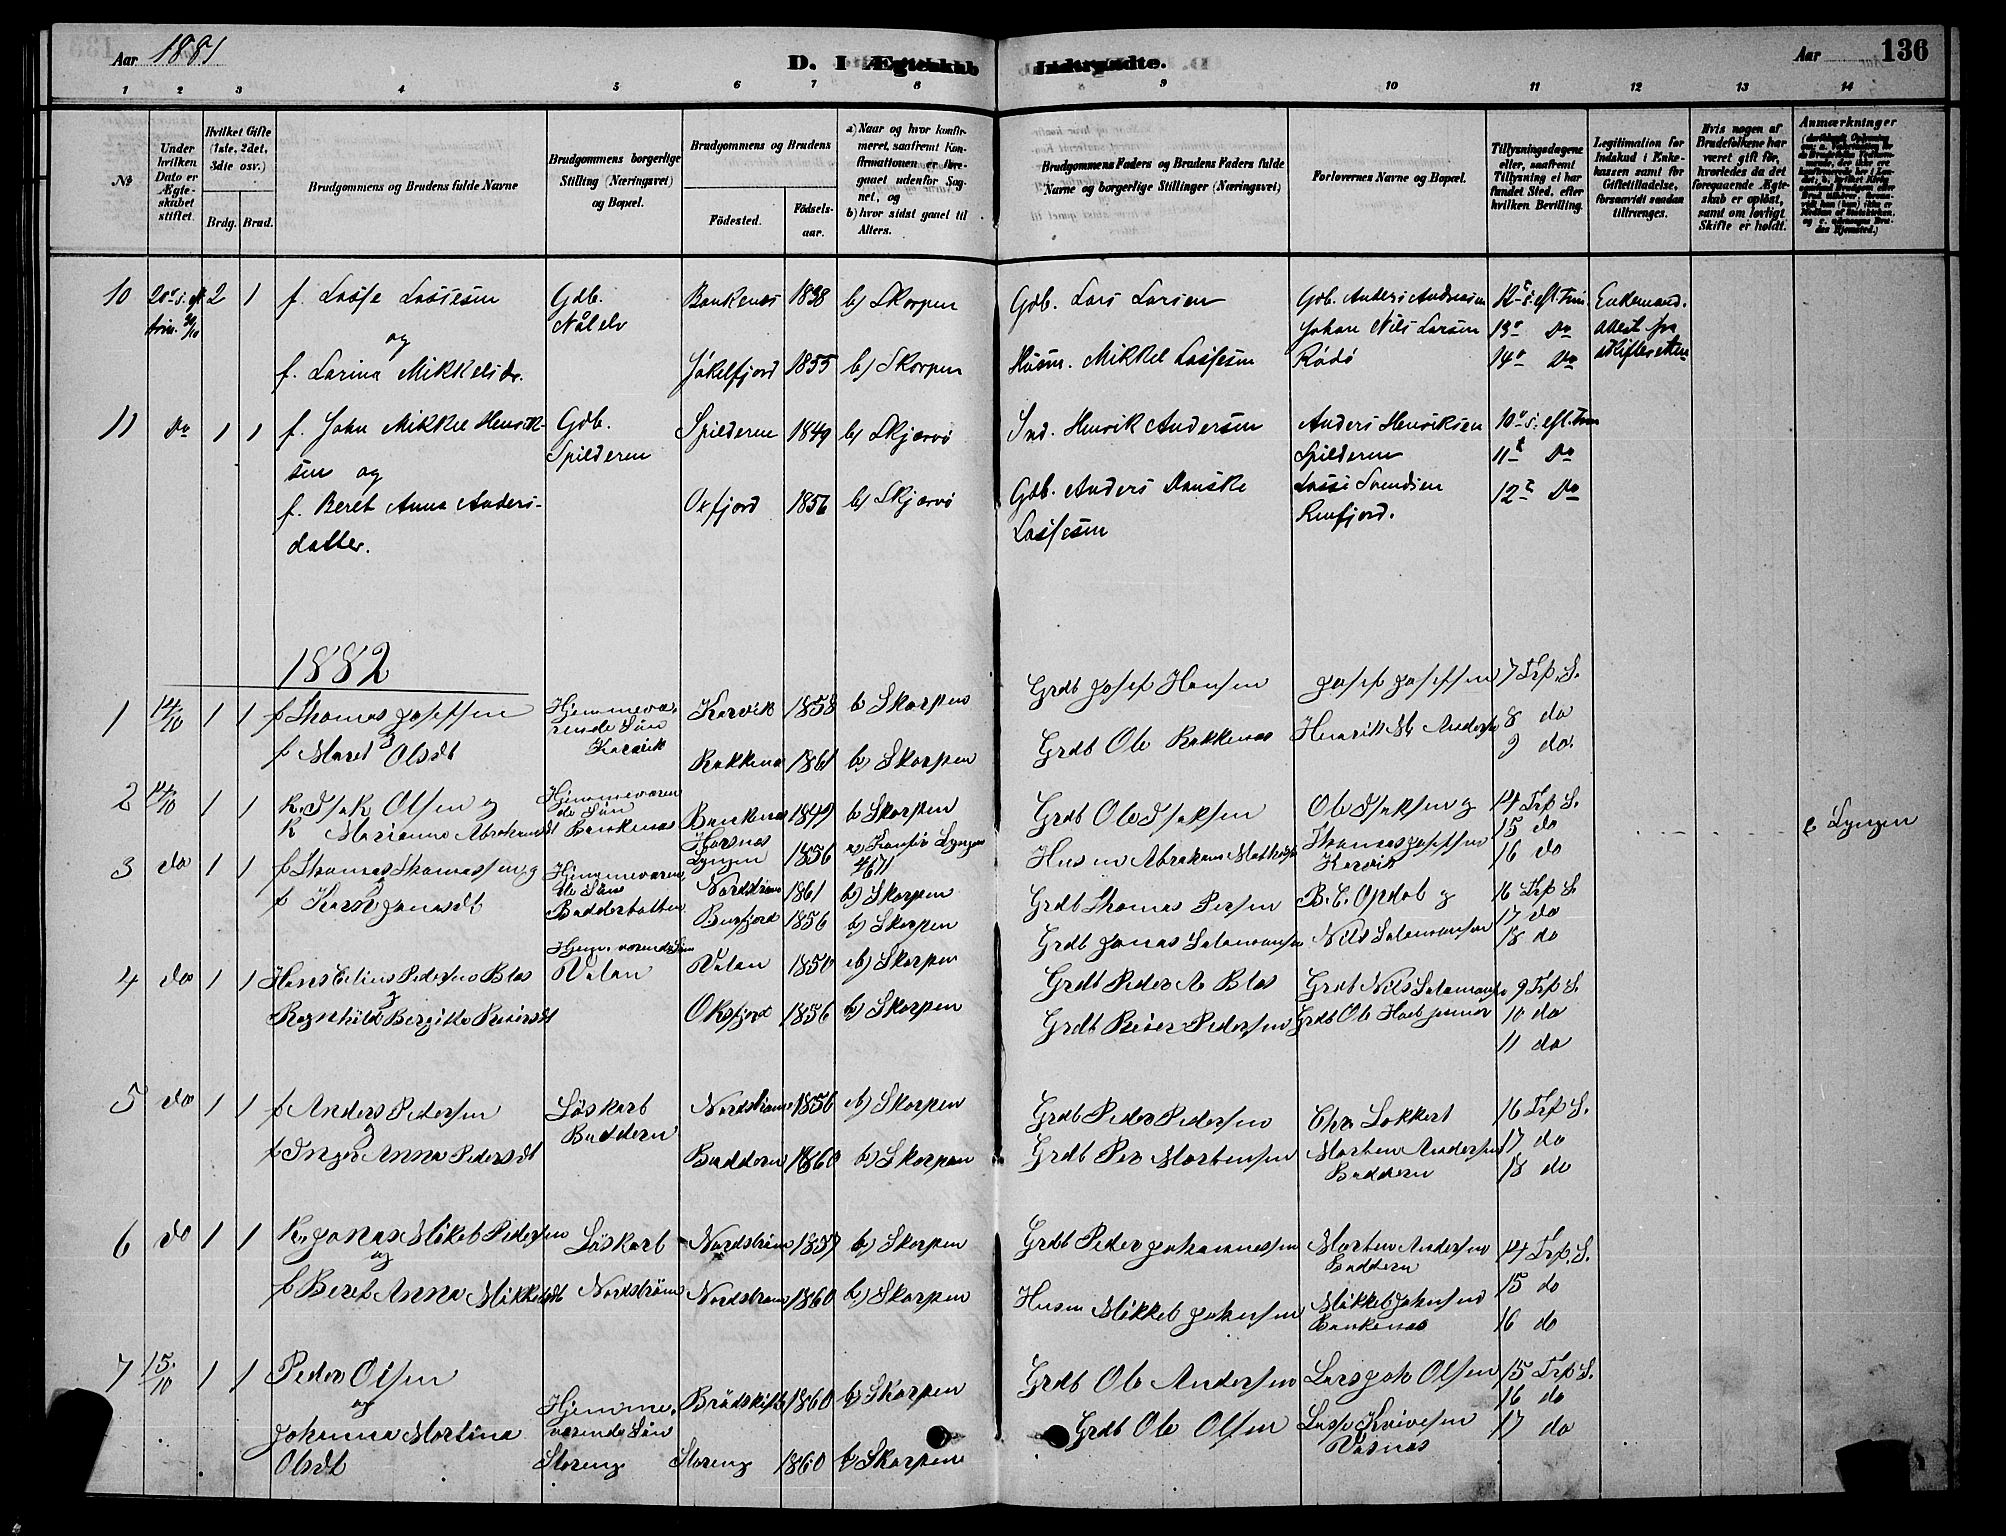 Aar 1881
D. I Ægteskab Indtrædte.
Aar 136
1 2 3 4 5 6 7 8 9 10 11 12 13 14
No
Under hvilken Dato er Ægteskabet stiftet.
Hvilket Gifte (1ste, 2det, 3die osv.)
Brdg. Brud.
Brudgommens og Brudens fulde Navne
Brudgommens borgerlige Stilling (Næringsvei) og Bopæl.
Brudgommens og Brudens
Fødested. Fødsels-aar.
a) Naar og hvor konfirmeret, saafremt Konfirmationen er foregaaet udenfor Sognet, og
b) hvor sidst gaaet til Alters.
Brudgommens Faders og Brudens Faders fulde Navne og borgerlige Stillinger (Næringsvei)
Forlovernes Navne og Bopæl.
Tillysningsdagene eller, saafremt Tillysning ei har fundet Sted, efter hvilken Bevilling.
Legitimation for Indskud i Enkekassen samt for Giftetilladelse, forsaavidt saadan tiltrænges.
Hvis nogen af Brudefolkene har været gift før, hvorledes da det foregaaende Ægteskab er opløst, samt om lovligt Skifte er holdt.
Anmærkninger
10 2 1 f. Lasse Lassesen Gdb. Bankenes 1838 b) Skorpen Gdb. Lars Larsen Gdb. Anders Andersen 12te s. eft. Trin. Enkemand.
trin. 30/10 og Nålelv Johan Nils Larsen 13de Do Attest fra
f. Larina Mikkelsdr. Jøkelfjord 1855 b) Skorpen Husm. Mikkel Lassesen Rødø 14de Do Skifteretten
11 Do 1 1 f. John Mikkel Henrik- Gdb. Spilderen 1849 b) Skjærvø Ind. Henrik Andersen Anders Henriksen 10de s. eft. Trin
sen og Spilderen Spilderen 11te Do
f. Beret Anna Anders- Oxfjord 1856 b) Skjærvø Gdb. Anders Danske Lasse Svendsen 12te Do
datter. Lassesen Reinfjord.
1882
1 14/10 1 1 f Thomas Josefsen Hjemmevæ- Korvik 1858 b Skorpen Grdb Josef Hansen Josef Josefsen 7 Trf. S.
rende Søn 8 do
f Maret Olsdt Korvik Bakkenes 1861 b) Skorpen Grdb Ole Bakkenes Henrik M Anders 9 do.
2 14/10 1 1 K. Isak Olsen og Hjemmeværen Bankenes 1849 b Skorpen Grdb Ole Isaksen Ole Isaksen og 14 Trf S.
de Søn 15 do
K Marianna Abrahamsdt Bankenes Lyngen 1856 a) Lyngen Husm Abraham Thomas Josefsen 16 do c Lyngen
Korvik
3 do 1 1 f Thomas Thomassen og Hjemmeværen Nordstrøm 1861 b) Skorpen Grdb Thomas Persen B. C. Opdal og 16 Trf S.
de Søn 17 do
f Karn Jonasdt Badderbotten Burfjord 1856 b) Skorpen Grdb Jonas Salamonsen Nils Salamonsen 18 do
4 do 1 1 Hans Elius Pedersen Blas Valan Valan 1850 b) Skorpen Grdb Peder A Blas Grdb Nils Salamonsen 9 Trf S.
Ragnhild Bergitte Reiersdt Oksfjord 1856 b) Skorpen Grdb Reier Pedersen Grdb Ole Junior 10 do
11 do
5 do 1 1 f Anders Pedersen Løskarl Nordstrøm 1856 b) Skorpen Grdb Peder Pedersen Chr Lokkert 16 Trf S.
Baddern Morten Andersen 17 do
f Inger Anna Pedersdt Baddern 1860 b) Skorpen Grdb Per Mortensen Baddern 18 do
6 do 1 1 K. Jonas Mikel Pedersen Løskarl Nordstrøm 1857 b) Skorpen Grdb Peder Johannessen Morten Andersen 14 Trf. S.
og Baddern
f Beret Anna Mikkelsdt Nordstrøm Nordstrøm 1860 b) Skorpen Husm Mikkel Johnsen Mikkel Johnsen 15 do
Bankenes 16 do
7 15/10 1 1 Peder Olsen Hjemme- 1860 b) Skorpen Grdb Ole Andersen Lars Joh Olsen 15 Trf. S.
og værende Søn 16 do
Johanna Martina Storeng Storeng 1860 b) Skorpen Grdb Ole Olsen 17 do
Olsdt